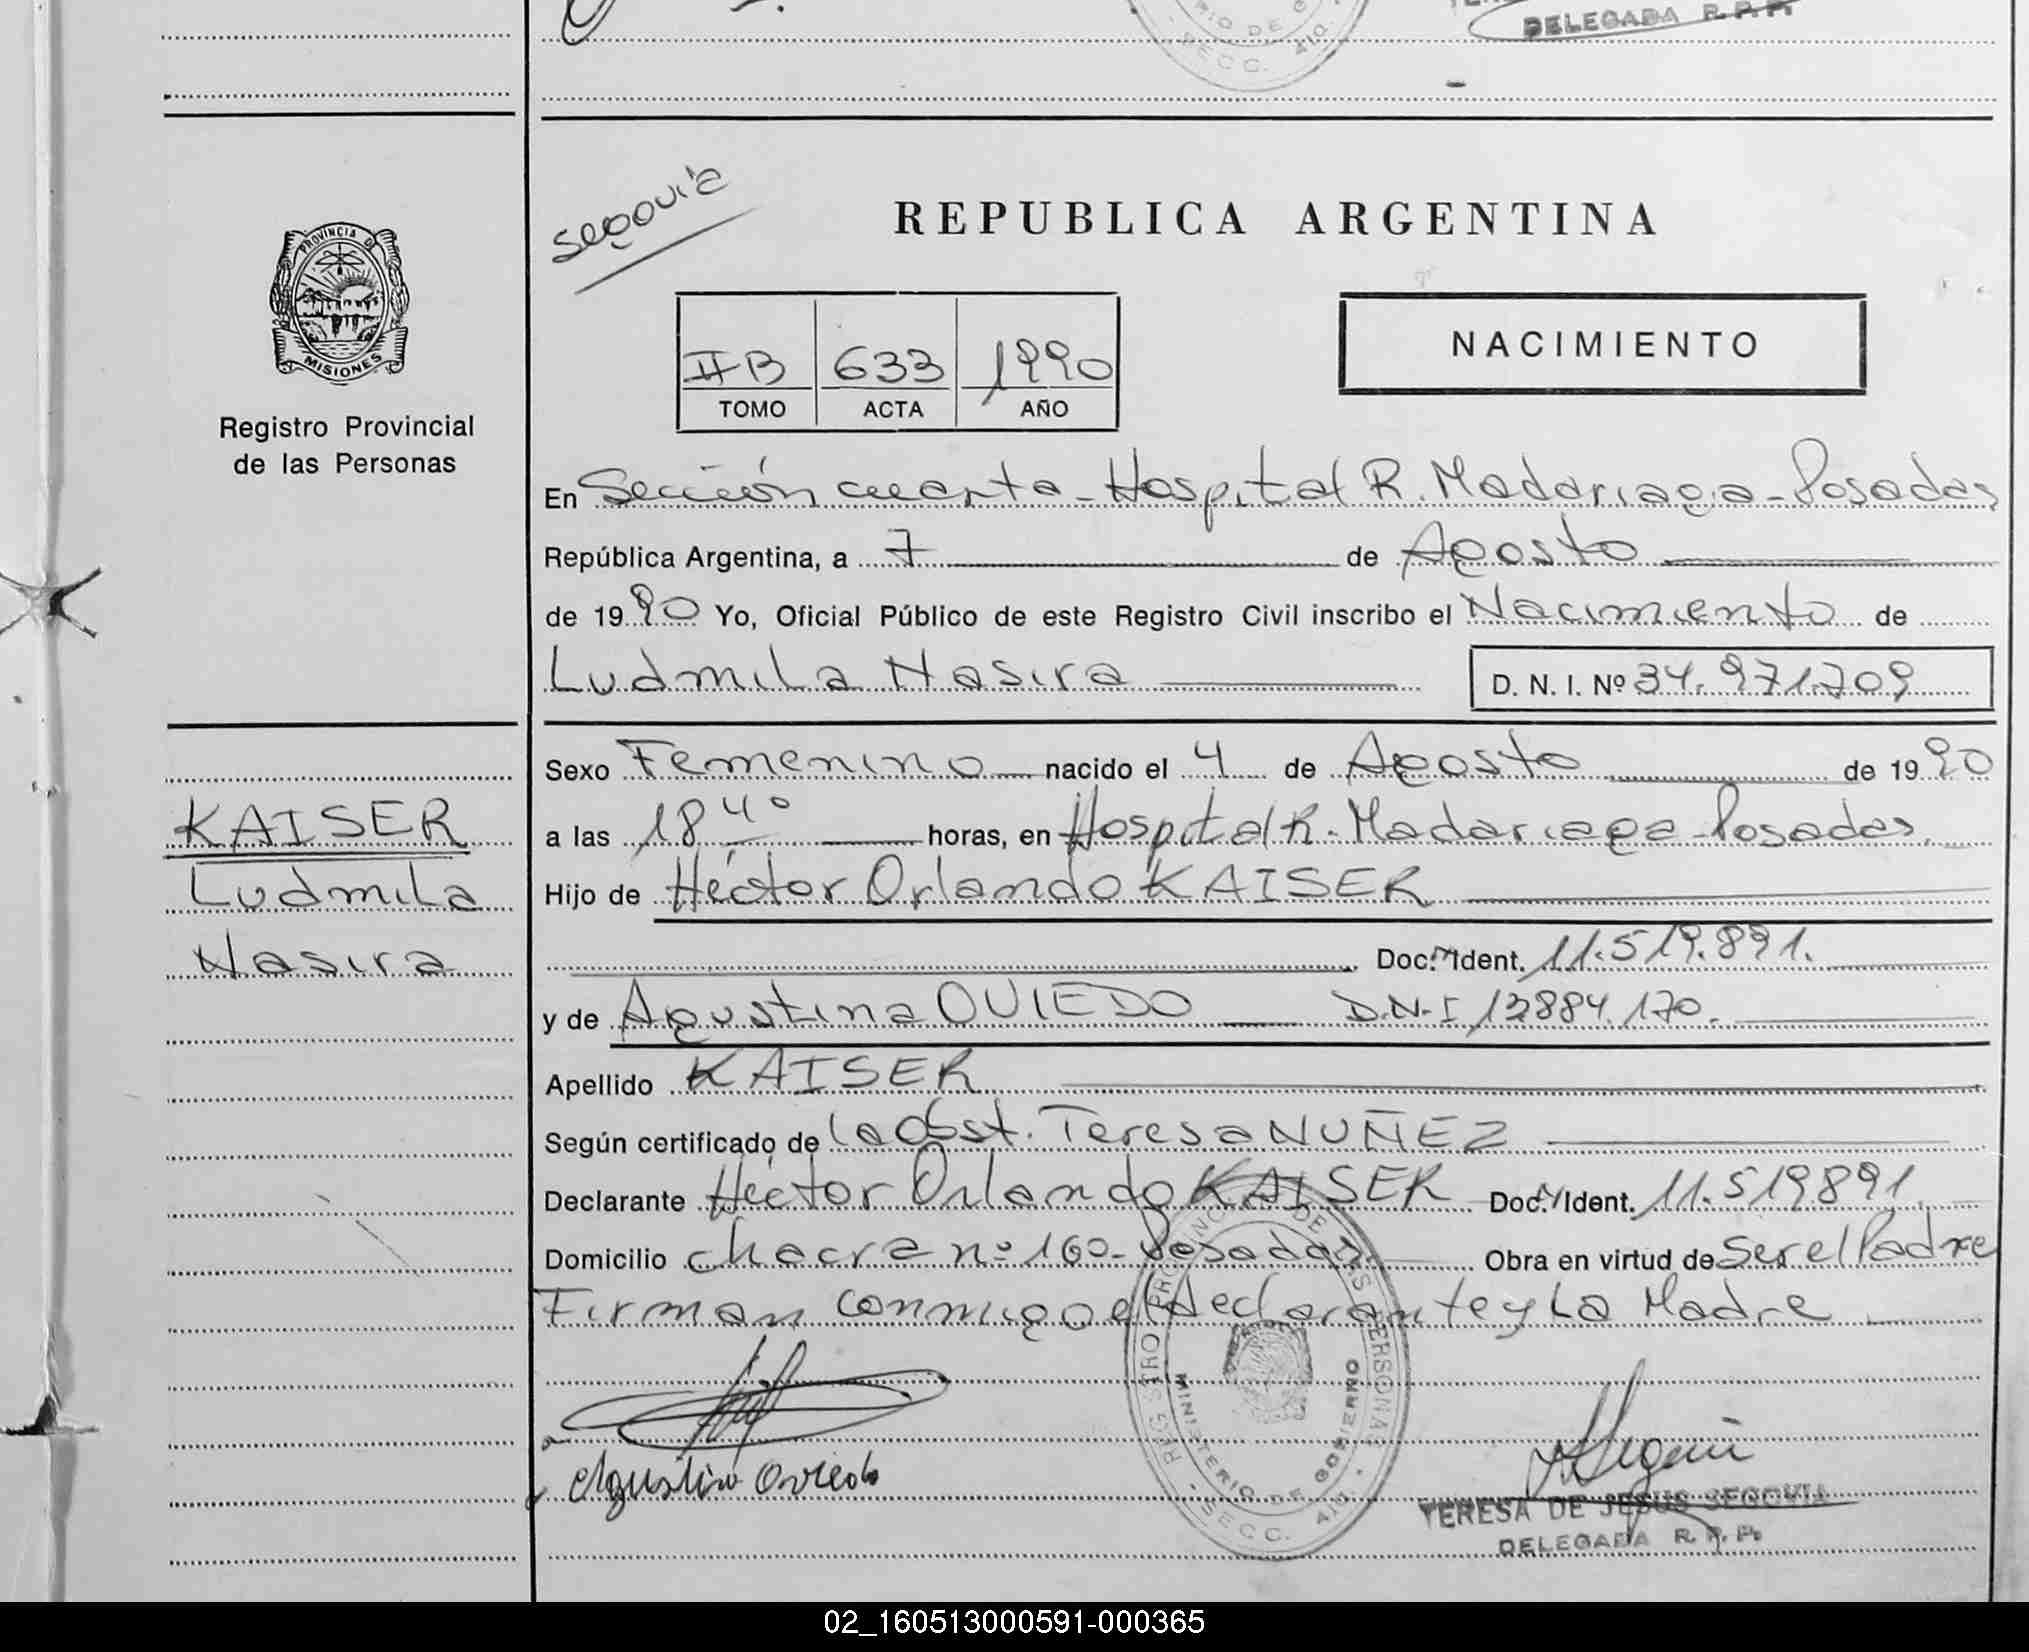 DELEGADA R. P. P.
Segovia
REPUBLICA ARGENTINA
PROVINCIA DE
MISIONES
Registro Provincial
de las Personas
II B 633 1990
TOMO ACTA AÑO
NACIMIENTO
En Sección cuarta - Hospital R. Madariaga - Posadas
República Argentina, a 7 de Agosto
de 1990 Yo, Oficial Público de este Registro Civil inscribo el Nacimiento de
Ludmila Nasira D. N. I. Nº 34.971.709
Sexo Femenino nacido el 4 de Agosto de 1990
KAISER
Ludmila
Nasira
a las 18 40 horas, en Hospital R. Madariaga - Posadas.
Hijo de Héctor Orlando KAISER
Doc. Ident. 11.519.891.
y de Agustina OVIEDO D.N.I 13884.170.
Apellido KAISER
Según certificado de La Obst. Teresa NUÑEZ
Declarante Héctor Orlando KAISER Doc. Ident. 11.519891
Domicilio Chacra nº 160 - Posadas. Obra en virtud de ser el Padre
Firman conmigo el declarante y La Madre
REGISTRO PROVINCIAL DE LAS PERSONAS
MINISTERIO DE GOBIERNO
SECC. 4ta.
Agustina Oviedo
TERESA DE JESUS SEGOVIA
DELEGADA R. P. P.
02_160513000591-000365